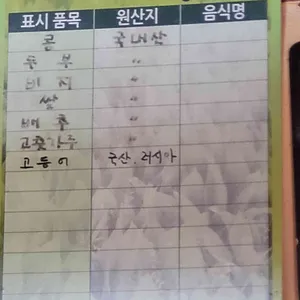 표시 품목 원산지 음식명
콩 국내산
두부 〃
비지 〃
쌀 〃
배추 〃
고춧가루 〃
고등어 국산, 러시아